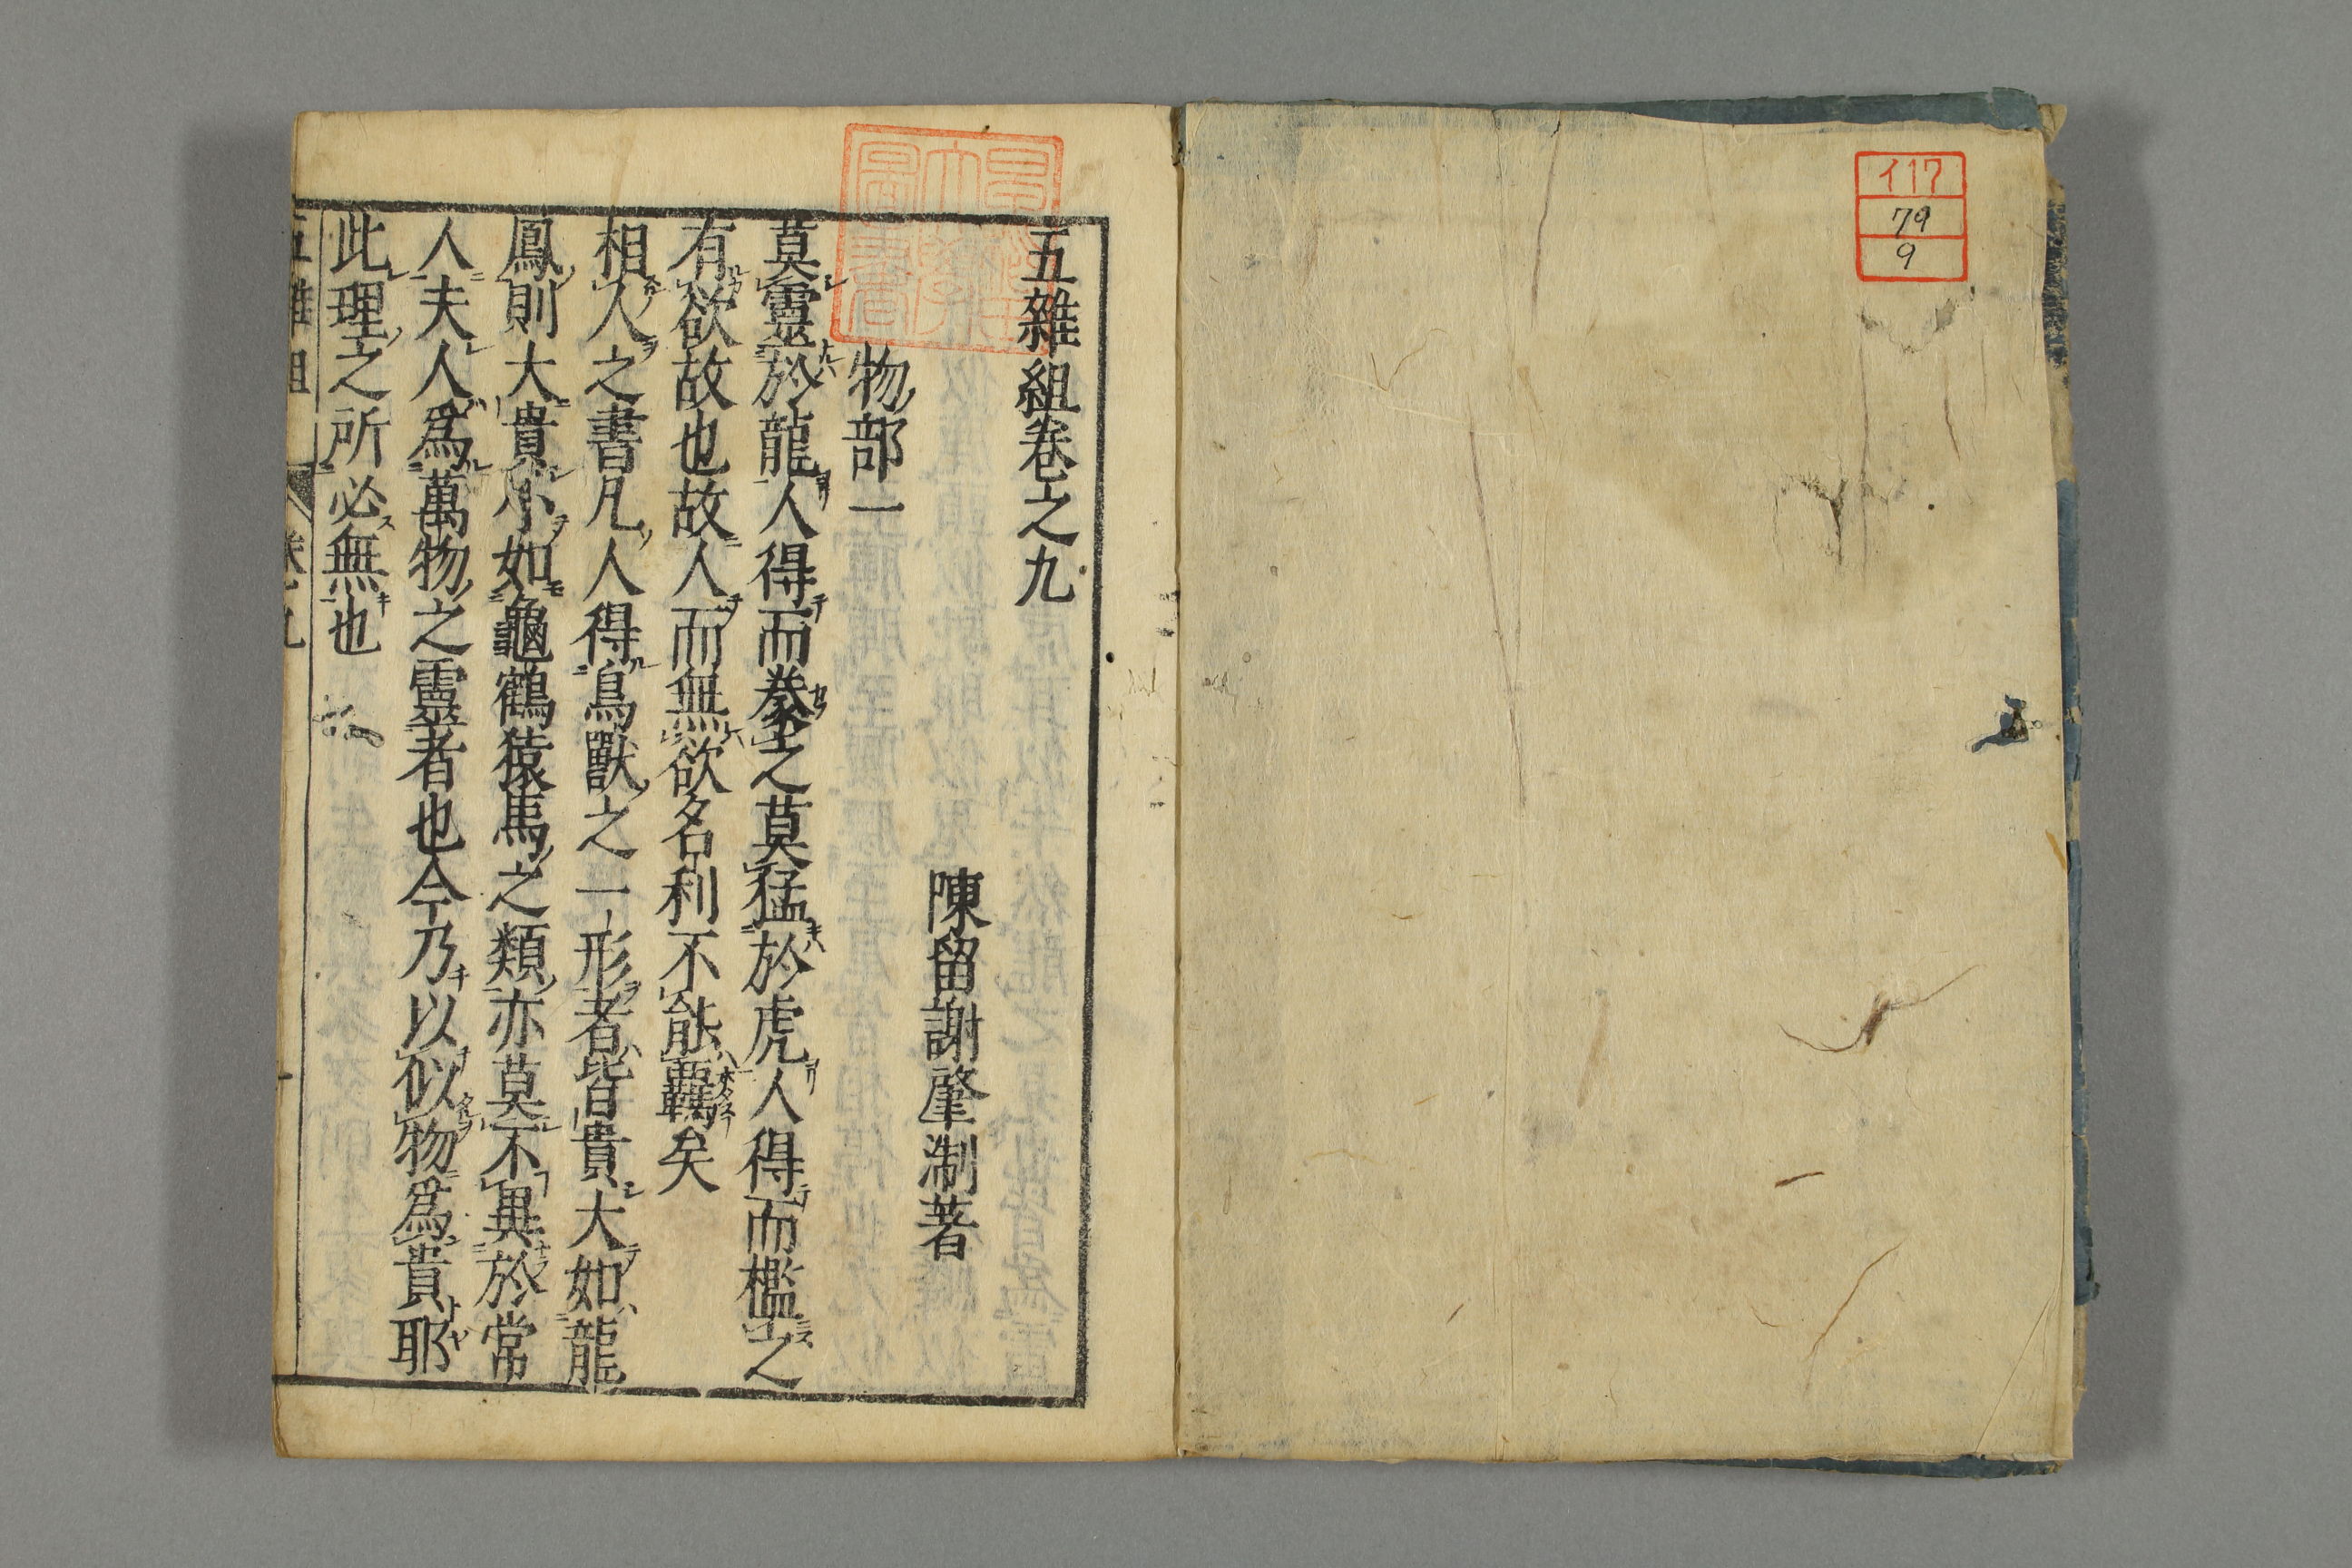 イ17
79
9
五雜組卷之九
陳留謝肇淛著
物部一
莫靈於龍人得而豢之莫猛於虎人得而檻之
有欲故也故人而無欲名利不能羈矣
相人之書凡人得鳥獸之一形者皆貴大如龍
鳳則大貴小如龜鶴猿馬之類亦莫不異於常
人夫人爲萬物之靈者也今乃以似物爲貴耶
此理之所必無也
五雜組
卷九